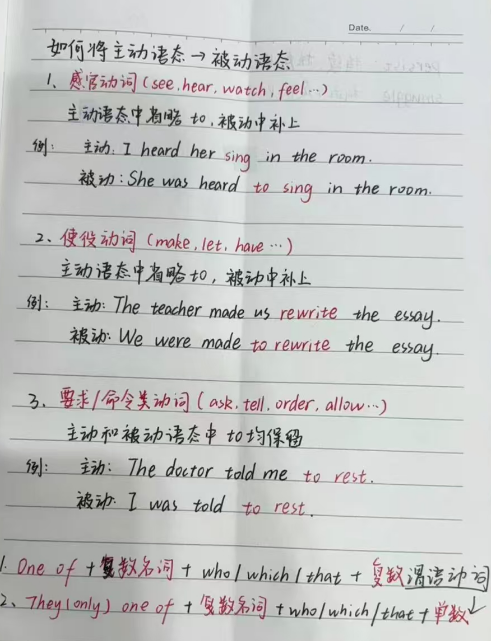 Date. / /
如何将主动语态→被动语态
1、感官动词(see.hear,watch,feel…)
主动语态中省略 to,被动中补上
例: 主动: I heard her sing in the room.
被动:She was heard to sing in the room.
2、使役动词(make,let,have…)
主动语态中省略to,被动中补上
例: 主动:The teacher made us rewrite the essay.
被动:We were made to rewrite the essay.
3、要求/命令类动词(ask.tell,order,allow…)
主动和被动语态中 to均保留
例: 主动: The doctor told me to rest.
被动: I was told to rest.
1. One of +复数名词 + who/which/that + 复数谓语动词
2、They(only) one of + 复数名词 +who/which/that+单数↓